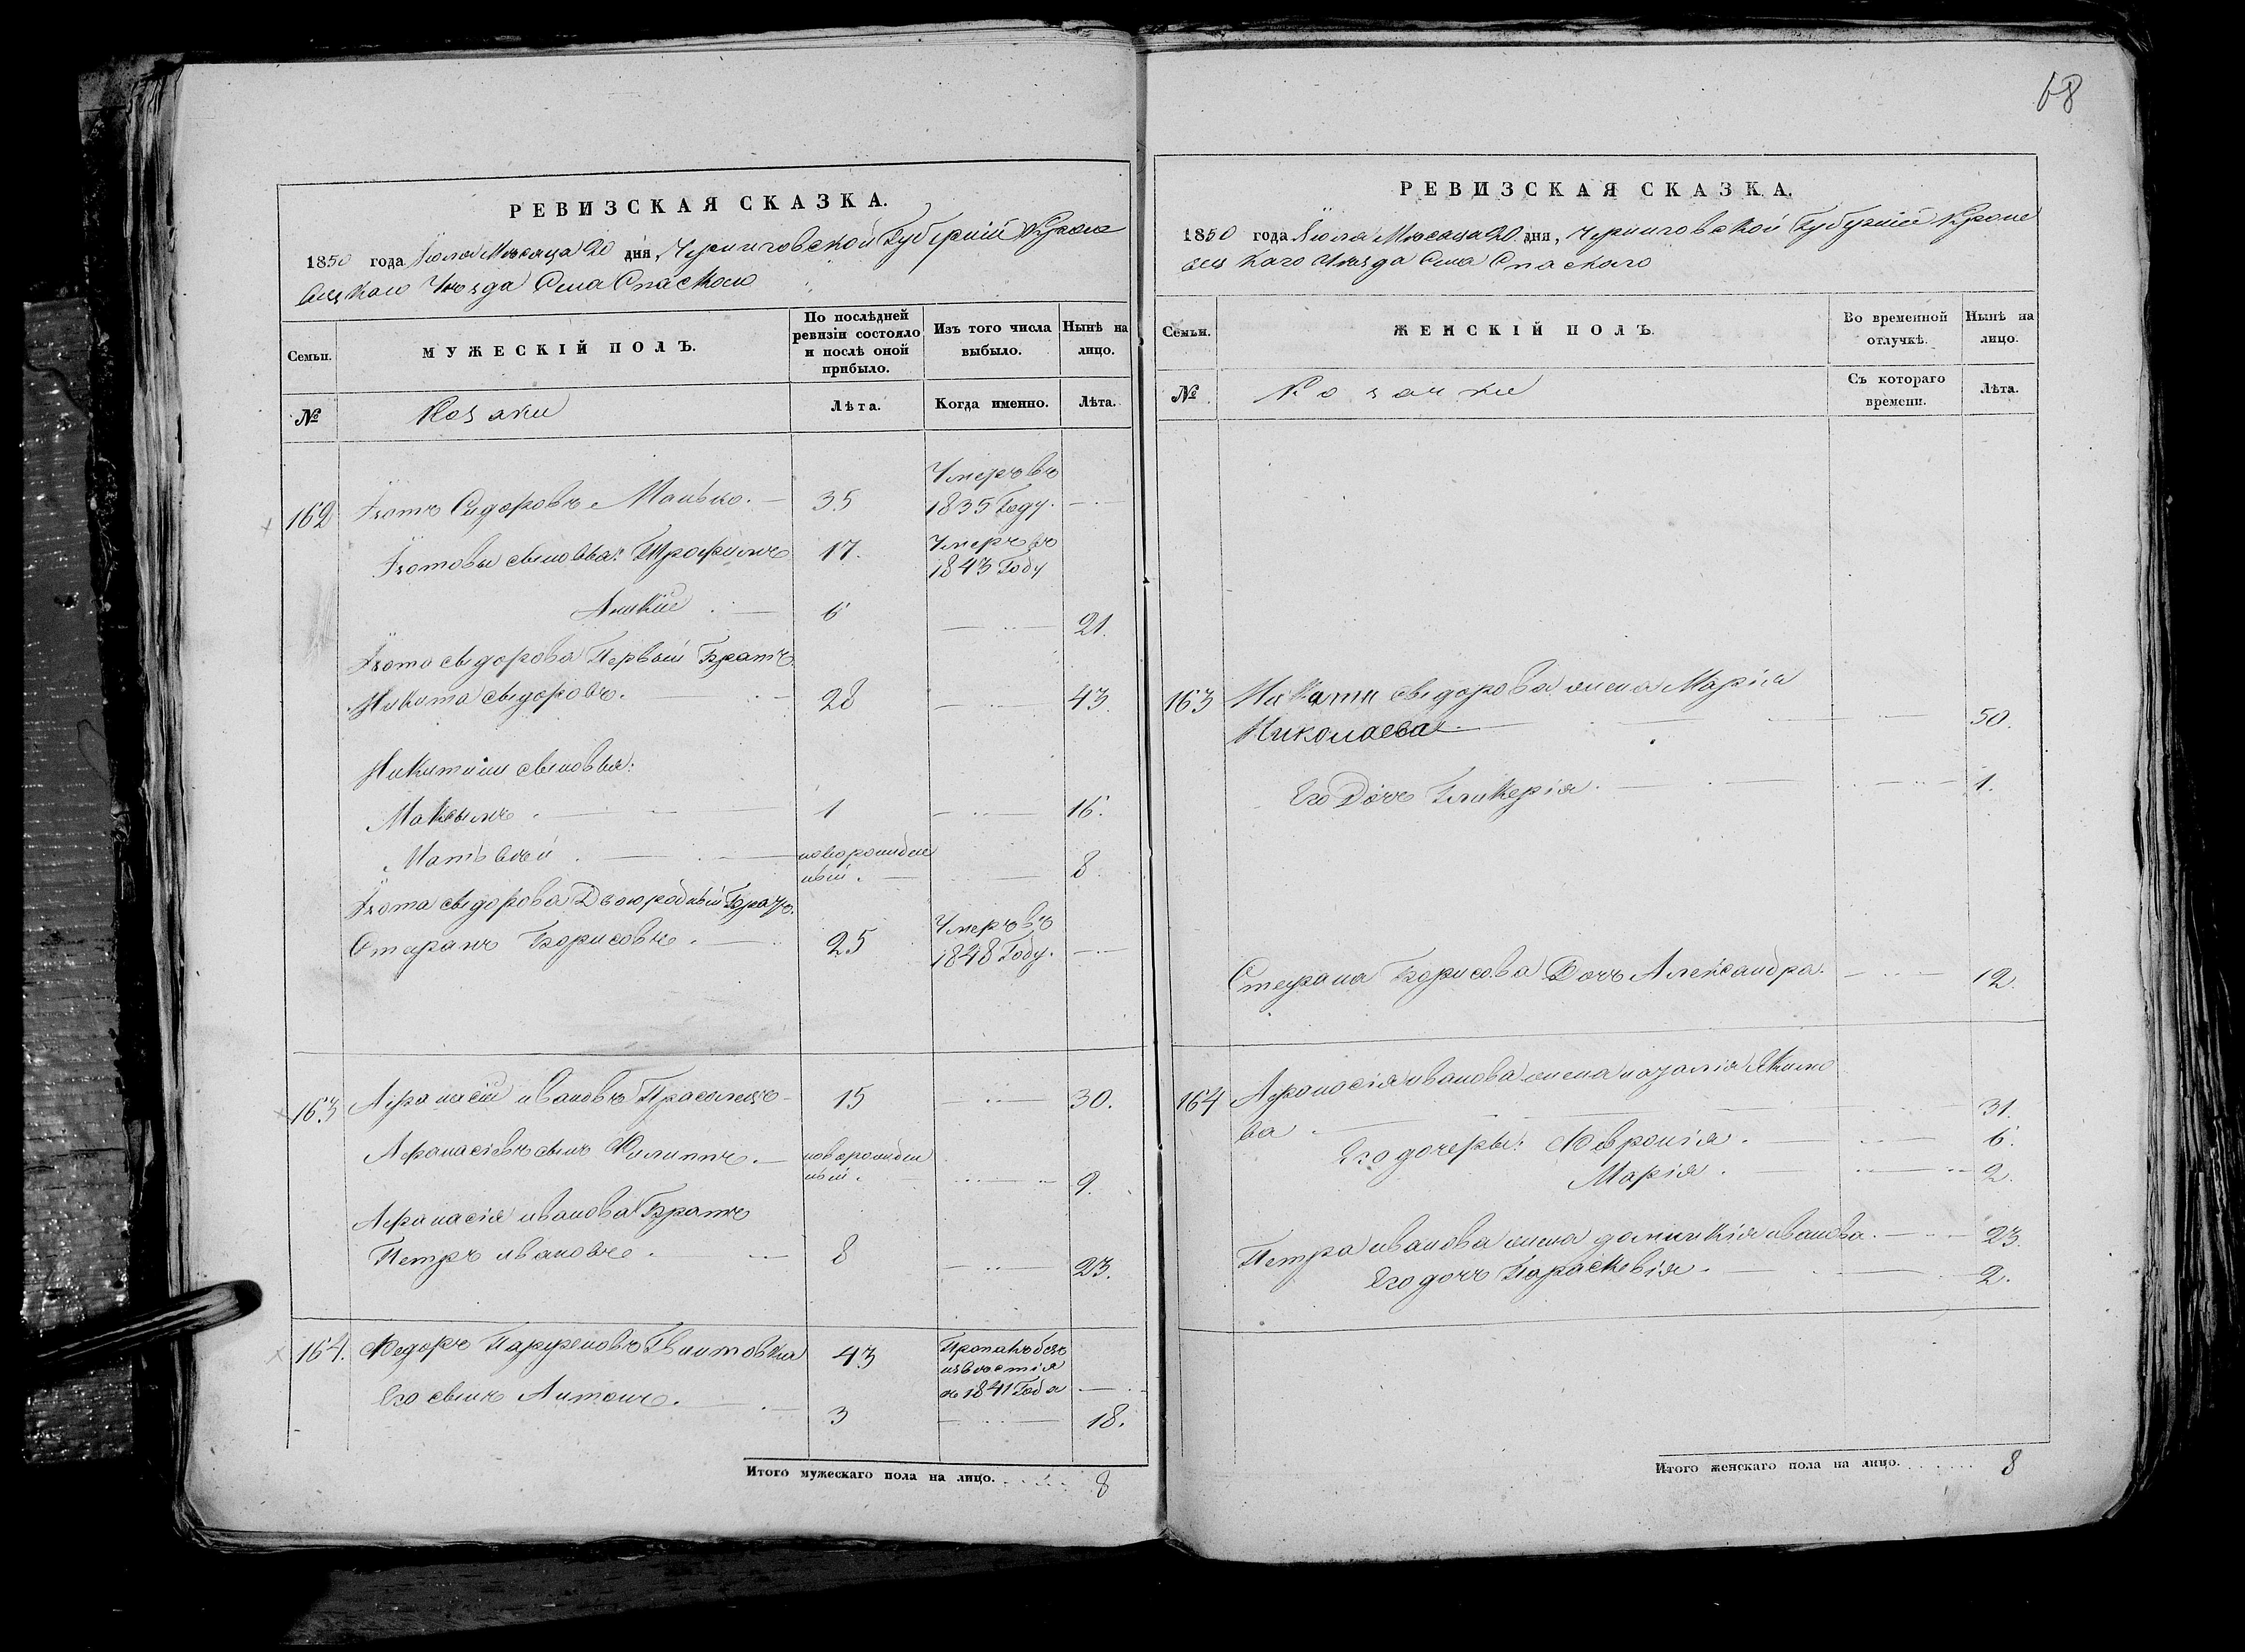 68
РЕВИЗСКАЯ СКАЗКА.
1850 года Іюля Мѣсяца 20 дня, Черниговской Губерніи Кроле
вецкаго Уѣзда Села Спаского
Семьи. МУЖЕСКІЙ ПОЛЪ. По послѣдней ревизіи состояло и послѣ оной прибыло. Изъ того числа выбыло. Нынѣ на лицо.
№ Козаки Лѣта. Когда именно. Лѣта.
162 Изотъ Сидоровъ Манько. 35 Умеръ въ 1835 Году.
Изотовы сыновья: Трофимъ 17. Умеръ въ 1843 Году
Аникій 6 21.
Изота сыдорова Первый Братъ
Никита сыдоровъ. 28 43.
Никитины сыновья:
Максымъ. 1 16.
Матьвей. новорожден
ный. 8.
Изота сыдорова Двоюродный Братъ.
Стефанъ Борисовъ. 25 Умеръ въ 1848 Году.
163 Афанасій ивановъ Прасолъ 15 30.
Афанасіевъ сынъ Филиппъ. новорожден
ный. 9.
Афанасія иванова Братъ
Петръ ивановъ. 8 23.
164. Федоръ Парфеновъ Гвинтовка 43 Пропалъ безъ
извѣстія
съ 1841 Года
Его сынъ Антонъ. 3 18.
Итого мужескаго пола на лицо. 8
РЕВИЗСКАЯ СКАЗКА.
1850 года Іюля Мѣсяца 20 дня, Черниговской Губерніи Кроле
вец каго Уѣзда Села Спаского
Семьи. ЖЕНСКІЙ ПОЛЪ. Во временной отлучкѣ. Нынѣ на лицо.
№ Козачки Съ котораго времени. Лѣта.
163 Никиты сыдорова жена Марія
Николаева 50.
Его Дочь Гликерія. 1.
Стефана Борисова Дочь Александра. 12.
164 Афанасія иванова жена наталія Якимо
ва. 31.
Его дочеры: Февронія. 6.
Марія. 2.
Петра иванова жена домникія иванова. 23.
Его дочь Параскевія. 2.
Итого женскаго пола на лицо. 8